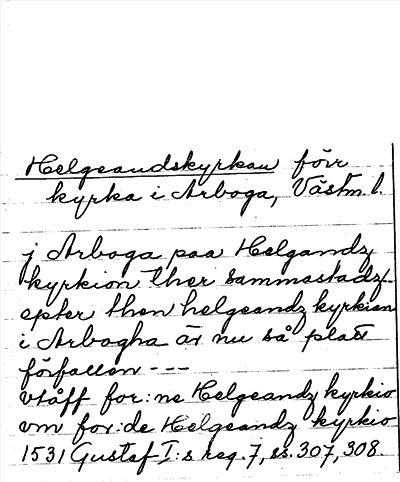 Helgeandskyrkan förr
kyrka i Arboga, Västm. l.
j Arboga paa Helgandz
kyrkion ther sammastadz
epter then helgeandz kyrkian
i Arbogha är nu så platt
förfallen ---
vtåff for:ne Helgeandz kyrkio
vm for:de Helgeandz kyrkio
1531 Gustaf I:s reg. 7, ss. 307, 308.